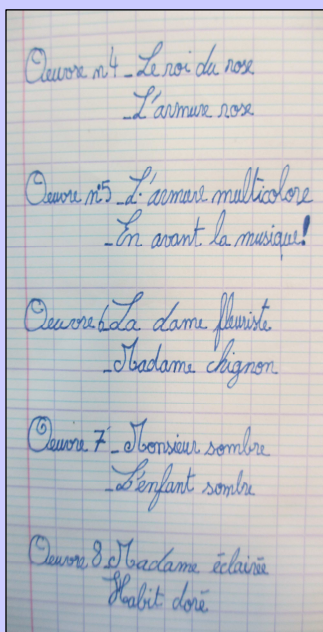 Oeuvre n°4 - Le roi du rose
- L'armure rose
Oeuvre n°5 - L'armure multicolore
- En avant la musique!
Oeuvre 6 - La dame fleuriste
- Madame chignon
Oeuvre 7 - Monsieur sombre
- L'enfant sombre
Oeuvre 8 - Madame éclairée
Habit doré